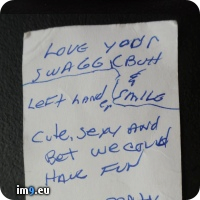 LOVE YOUR
SWAGG, BUTT
&
LEFT HAND
SMILE
CUTE, SEXY AND
BET WE COULD
HAVE FUN
im9.eu